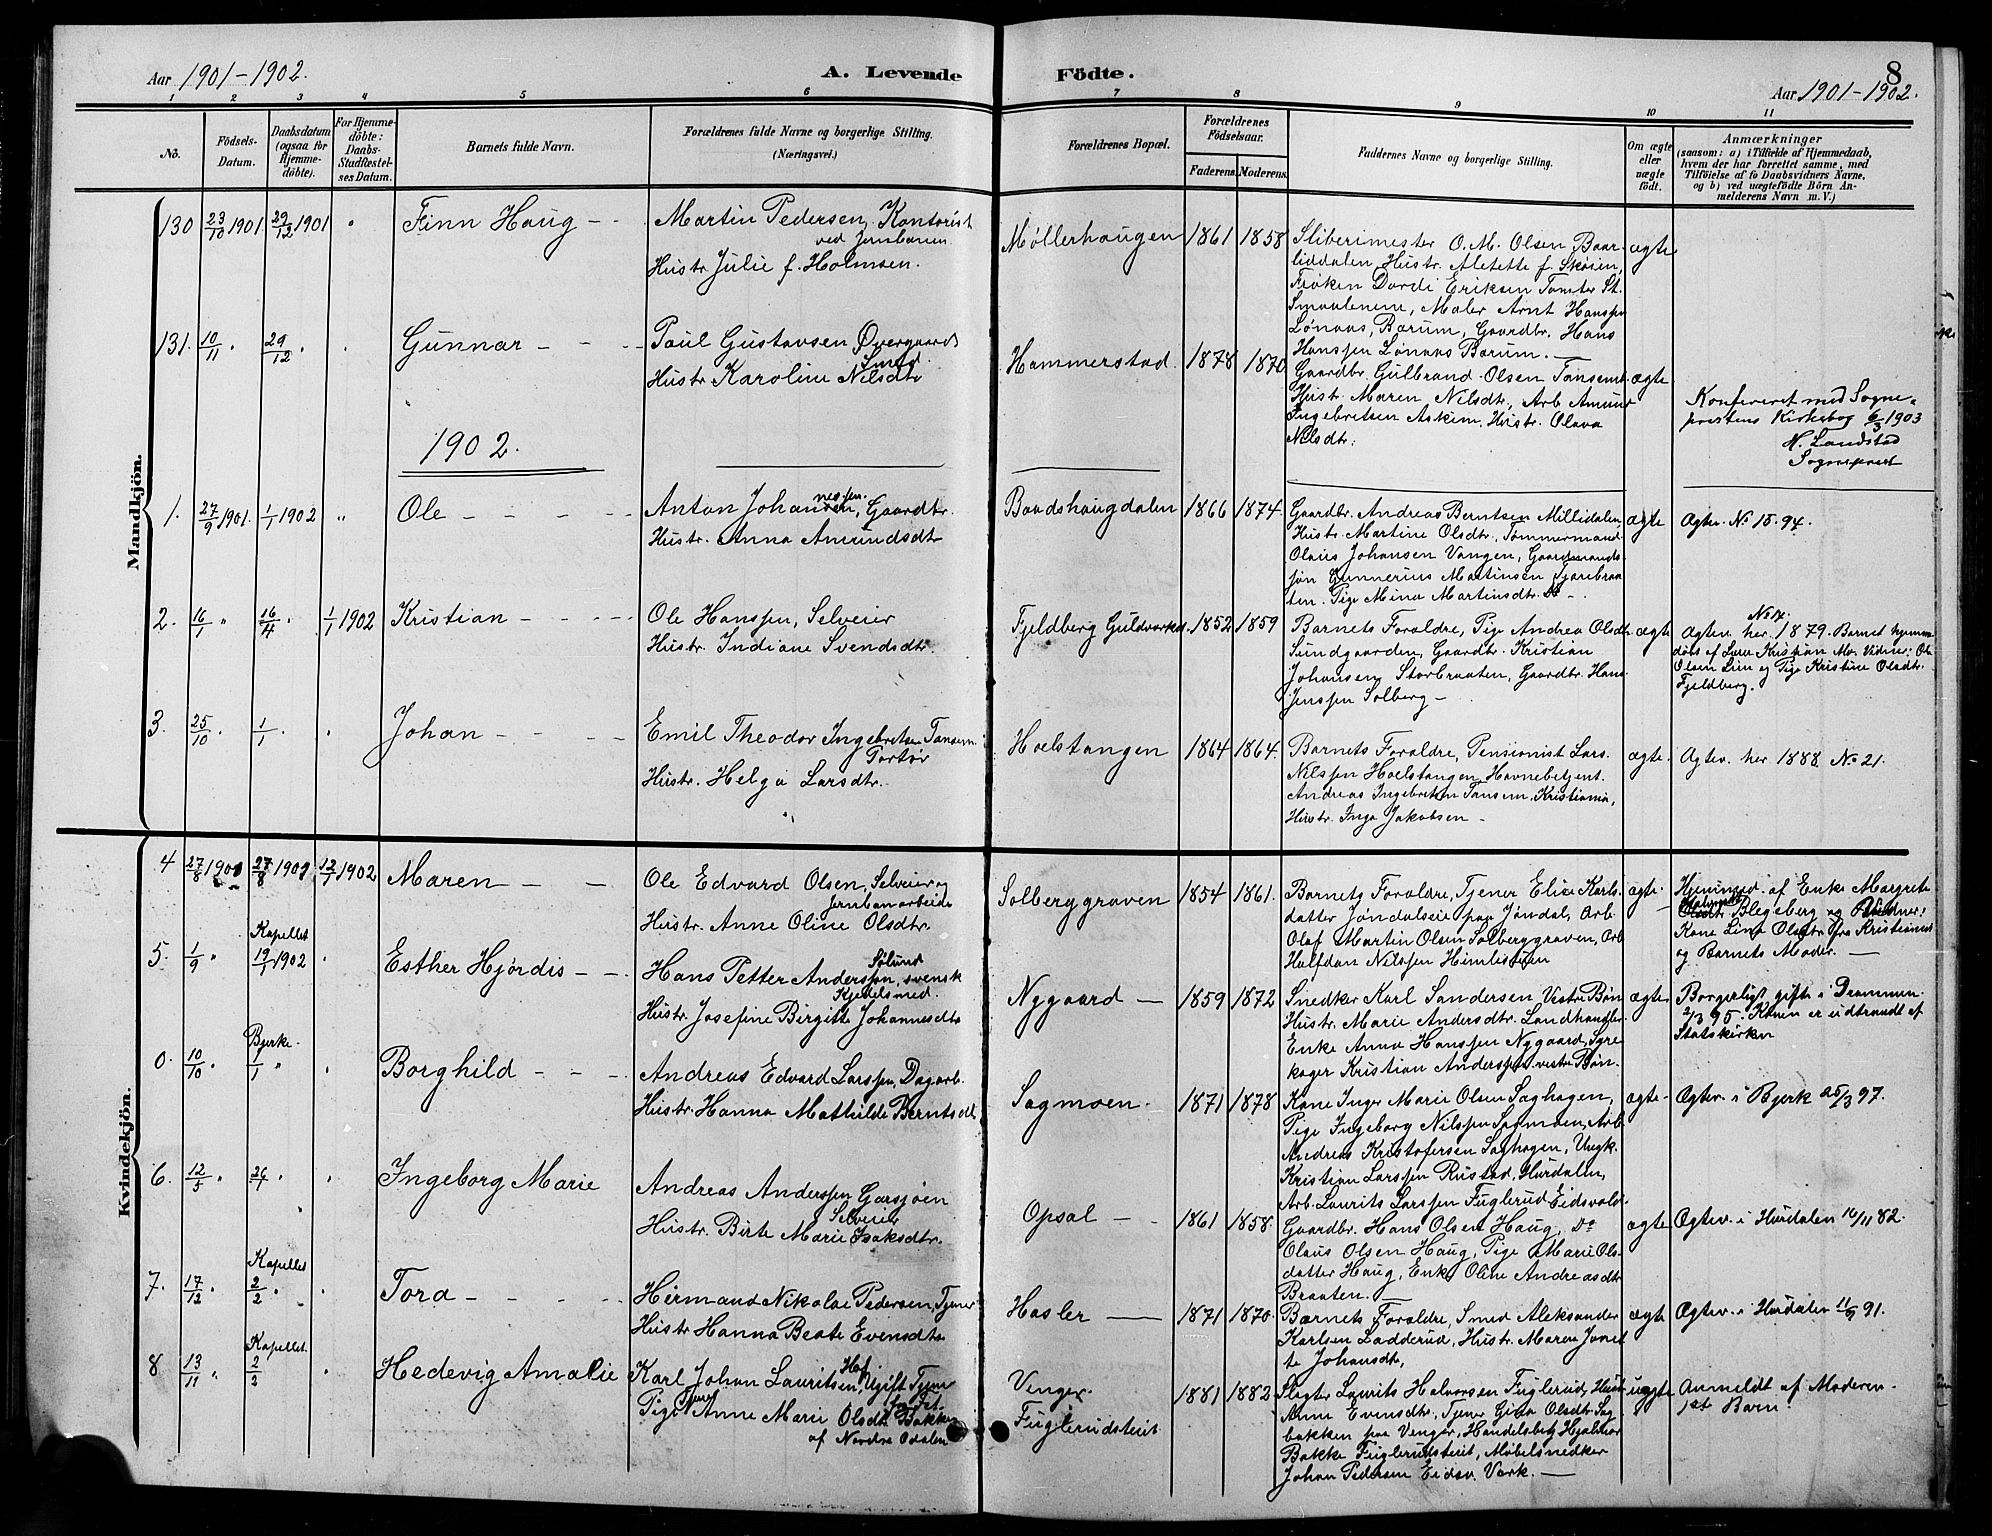 Aar 1901-1902.
A. Levende Födte.
8
Aar 1901-1902.
1 2 3 4 5 6 7 8 9 10 11
No.
Födsels-Datum.
Daabsdatum (ogsaa for Hjemmedöbte).
For Hjemmedöbte: Daabs-Stadfæstelses Datum.
Barnets fulde Navn.
Forældrenes fulde Navne og borgerlige Stilling.
(Næringsvei.)
Forældrenes Bopæl.
Forældrenes Födselsaar.
Faderens. Moderens.
Faddernes Navne og borgerlige Stilling.
Om ægte eller uægte födt.
Anmærkninger
(saasom: a) i Tilfælde af Hjemmedaab,
hvem der har forrettet samme, med
Tilföielse af to Daabsvidners Navne,
og b) ved uægtefödte Börn Anmelderens Navn m. V.)
Mandkjön.
130 23/10 1901 29/12 1901 " Finn Haug
Martin Pedersen, Kontorist
ved Jernbanen
Hustr Julie f. Holmsen.
Møllerhaugen 1861 1858
Sliberimester O. M. Olsen Baarliddalen, Hustr. Aletette f. Skøien,
Frøken Dordi Eriksen Tomter St.
Smaalenene, Maler Arnt Hanssen
Lønaas, Bærum, Gaardbr. Hans
Hanssen Lønaas Bærum.
ægte
131. 10/11 " 29/12 " " Gunnar
Paul Gustavsen Overgaard
Smed.
Hustr Karoline Nilsdtr
Hammerstad 1878 1870
Gaardbr Gulbrand Olsen Tansem
Hustr. Maren Nilsdtr, Arb Amund
Ingebretsen Askim, Hustr. Olava
Nilsdtr.
ægte
Konfereret med Sogneprestens Kirkebog 6/3 1903
N. Landstad
Sogneprest
1902.
1. 27/9 1901. 1/1 1902 " Ole
Anton Johannessen, Gaardbr.
Hustr. Anna Amundsdtr
Baadshaugdalen 1866 1874
Gaardbr. Andreas Berntsen Millidalen,
Hustr. Martine Olsdtr, Tømmermand
Olaus Johansen Vangen, Gaardmandssøn Gunnerius Martinsen Tjærebraaten. Pige Mina Martinsdtr. Do
ægte
Ægtev. No 15. 94.
2. 16/1 " 16/4 " 1/1 1902 Kristian
Ole Hanssen, Selveier
Hustr Indiane Svendsdtr.
Fjeldberg Guldværket. 1852 1859
Barnets Forældre, Pige Andrea Olsdtr
Sundgaarden, Gaardbr. Kristian
Johansen Storbraaten, Gaardbr. Hans
Jenssen Solberg
ægte
No 17.
Ægtev. her 1879. Barnet hjemmedøbt af Kristian Mo. Vidner: Ole
Olsen Lien og Pige Kristine Olsdtr.
Fjeldberg.
3. 25/10 " 1/1 " " Johan
Emil Theodor Ingebretsen Tansem
Portør
Hustr. Helga Larsdtr.
Hoelstangen 1864 1864.
Barnets Forældre, Pensionist Lars
Nilssen Hoelstangen, Havnebetjent
Andreas Ingebretsen Tansem, Kristiania,
Hustr. Inga Jakobsen
ægte.
Ægtev. her 1888 No 21.
Kvindekjön.
4 27/8 1901 27/8 1901 12/1 1902 Maren
Ole Edvard Olsen, Selveier og
Jernbanarbeide
Hustr. Anne Oline Olsdtr.
Solberggraven 1854 1861.
Barnets Forældre, Tjener Elise Karlsdatter Jøndalseie paa Jøndal, Arb.
Olaf Martin Olsen Solberggraven, Arb
Halfdan Nilssen Himlestøen
ægte.
Hjemmed. af Enke Margrete
Blegeberg og Vidner:
Kone Lina Olsdtr fra Kristiania
og Barnets Moder.
5. 1/9 " Kapellet 19/1 1902 " Esther Hjørdis
Hans Petter Anderssen Sølund, svensk
Kjedelsmed.
Hustr. Josefine Birgitte Johannesdtr
Nygaard 1859 1872
Snedker Karl Sandersen, Vestre Bøn
Hustr. Marie Andersdtr. Landhandler
Enke Anna Hanssen Nygaard,
Kristian Anderssen vestre Bøn.
ægte
Borgerligt gifte i Drammen
2/3 95. Konen er udtraadt af
Statskirken
0. 10/10 " Bjerke. 1/1 " " Borghild
Andreas Edvard Larssen, Dagarb.
Hustr Hanna Mathilde Berntsdtr.
Sagmoen. 1871 1878
Kone Inger Marie Olsen Saghagen,
Pige Ingeborg Nilssen Sagmoen, Arb.
Andreas Kristofersen Saghagen, Ungk.
Kristian Larssen Rustad, Hurdalen,
Arb. Laurits Larssen Fuglerud Eidsvold
ægte
Ægtev. i Bjerk 25/3 97.
6. 12/5 " 26/1 " " Ingeborg Marie
Andreas Anderssen Garsjøen
Selveier
Hustr. Birte Marie Isaksdtr.
Opsal 1861 1858.
Gaardbr. Hans Olsen Haug, Do
Olaus Olsen Haug, Pige Marie Olsdatter Haug, Enke Oline Andreasdtr
Braaten.
ægte
Ægtev. i Hurdalen 16/11 82.
7. 17/12 " Kapellet 2/2 " " Tora
Herman Nikolai Pedersen, Tjener
Hustr Hanna Beate Evensdtr
Hasler 1871 1870
Barnets Forældre, Smed Aleksander
Karlsen Ladderud, Hustr. Maren Janette Johansdtr,
ægte
Ægtev. i Hurdalen 11/9 91.
8 13/11 " Kapellet. 2/2 " Hedevig Amalie
Karl Johan Lauritsen Hof, Ugift Tjener
Pige Anne Marie Olsdtr Bakken
af Nordre Odalen
Venger.
Fuglerudsteiet
1881 1882
Slagter Laurits Halvorsen Fuglerud, Hustr
Anne Evensdtr, Tjener Gina Olsdtr Sagbakken paa Venger, Handelsbetj. Hjalmar
Bakke Fuglerudsteiet, Møbelsnedker
Johan Pedersen Eidsv. Værk.
uægte
Anmeldt af Moderen
1st Barn.